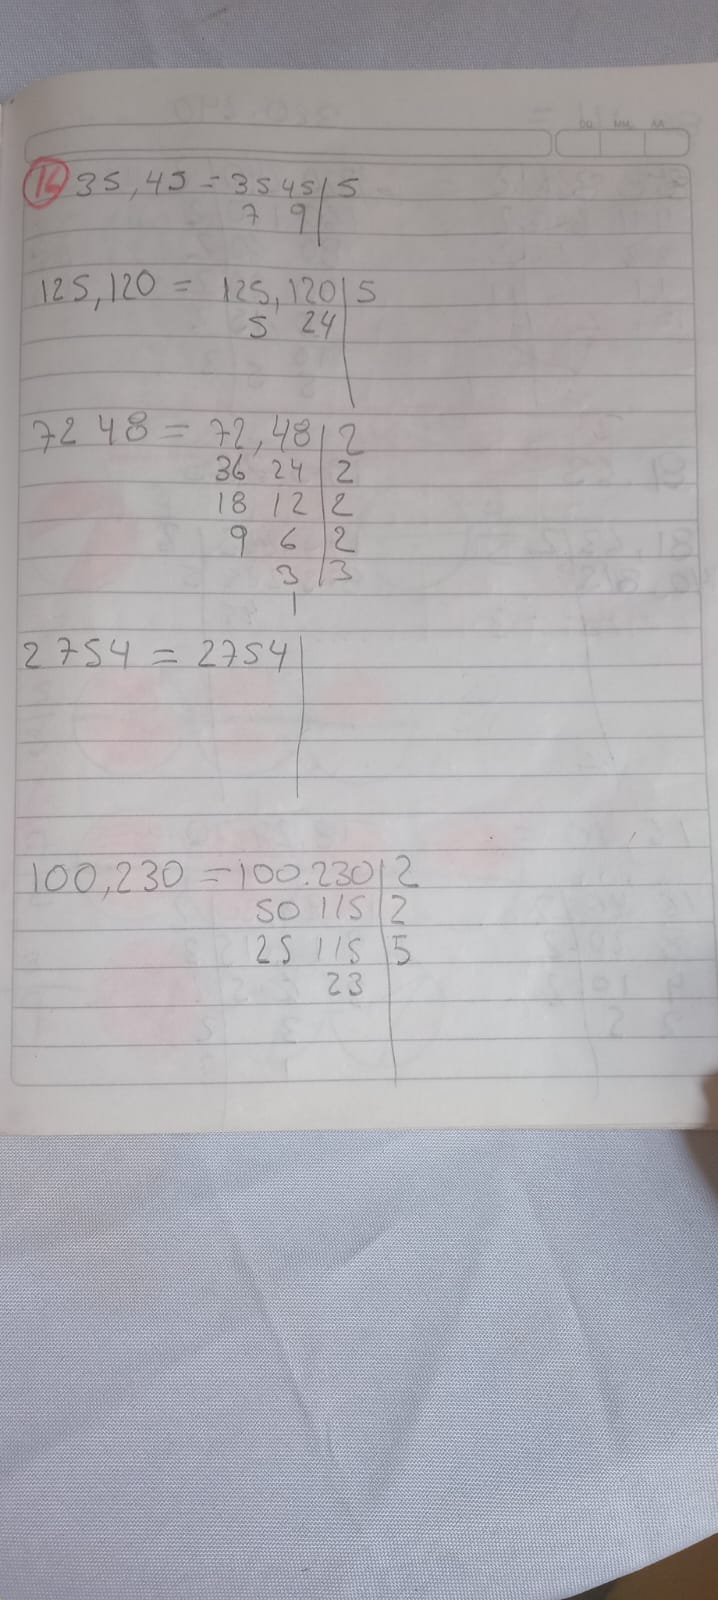 DD MM AA
14 35,45 = 35 45 5
7 9
125,120 = 125,120 5
5 24
72 48 = 72,48 2
36 24 2
18 12 2
9 6 2
3 3
1
2754 = 2754
100,230 = 100.230 2
50 115 2
25 115 5
23